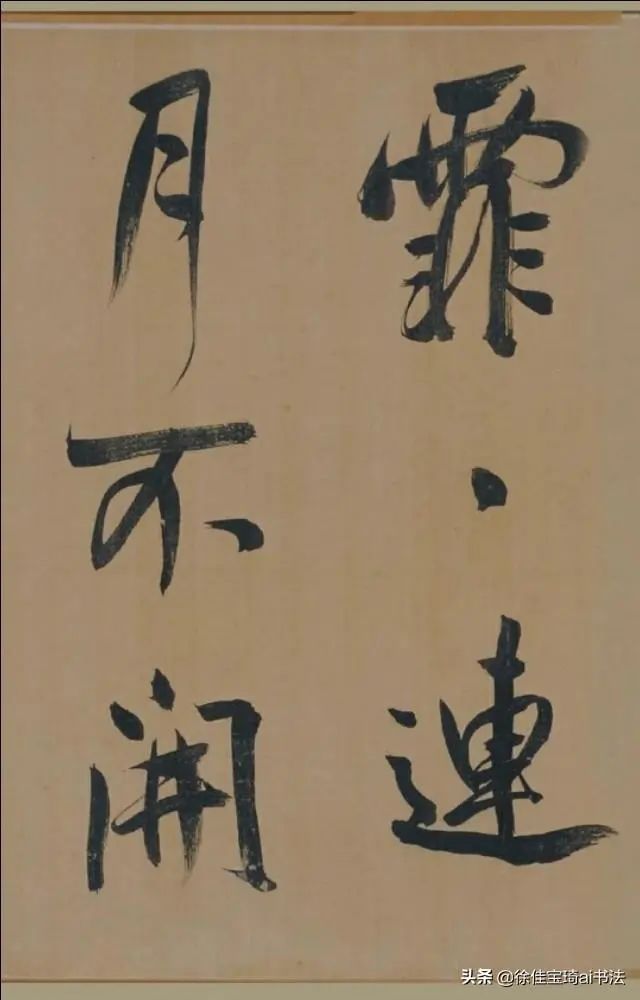 霏、連
月不開
头条 @徐佳宝琦ai书法